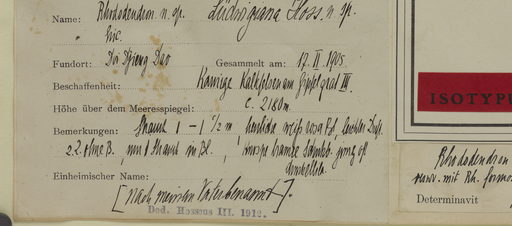 Name: Rhododendron n. sp. Ludwigiana Hoss. n. sp.
" Eric.
Fundort: Doi Djieng Dao Gesammelt am: 17. II 1905.
Beschaffenheit: Kalkfelsen am Gipfelgrat III.
Höhe über dem Meeresspiegel: c. 2180 m.
Bemerkungen: Strauch 1 - 1 1/2 m, weiß rosa
z. Z. ohne B., nur 1 Strauch in Bl.,
Einheimischer Name:
[nach meinem Vater benannt].
Ded. Hosseus III. 1912.
ISOTYPU
Rhododendron
verw. mit Rh. formos
Determinavit